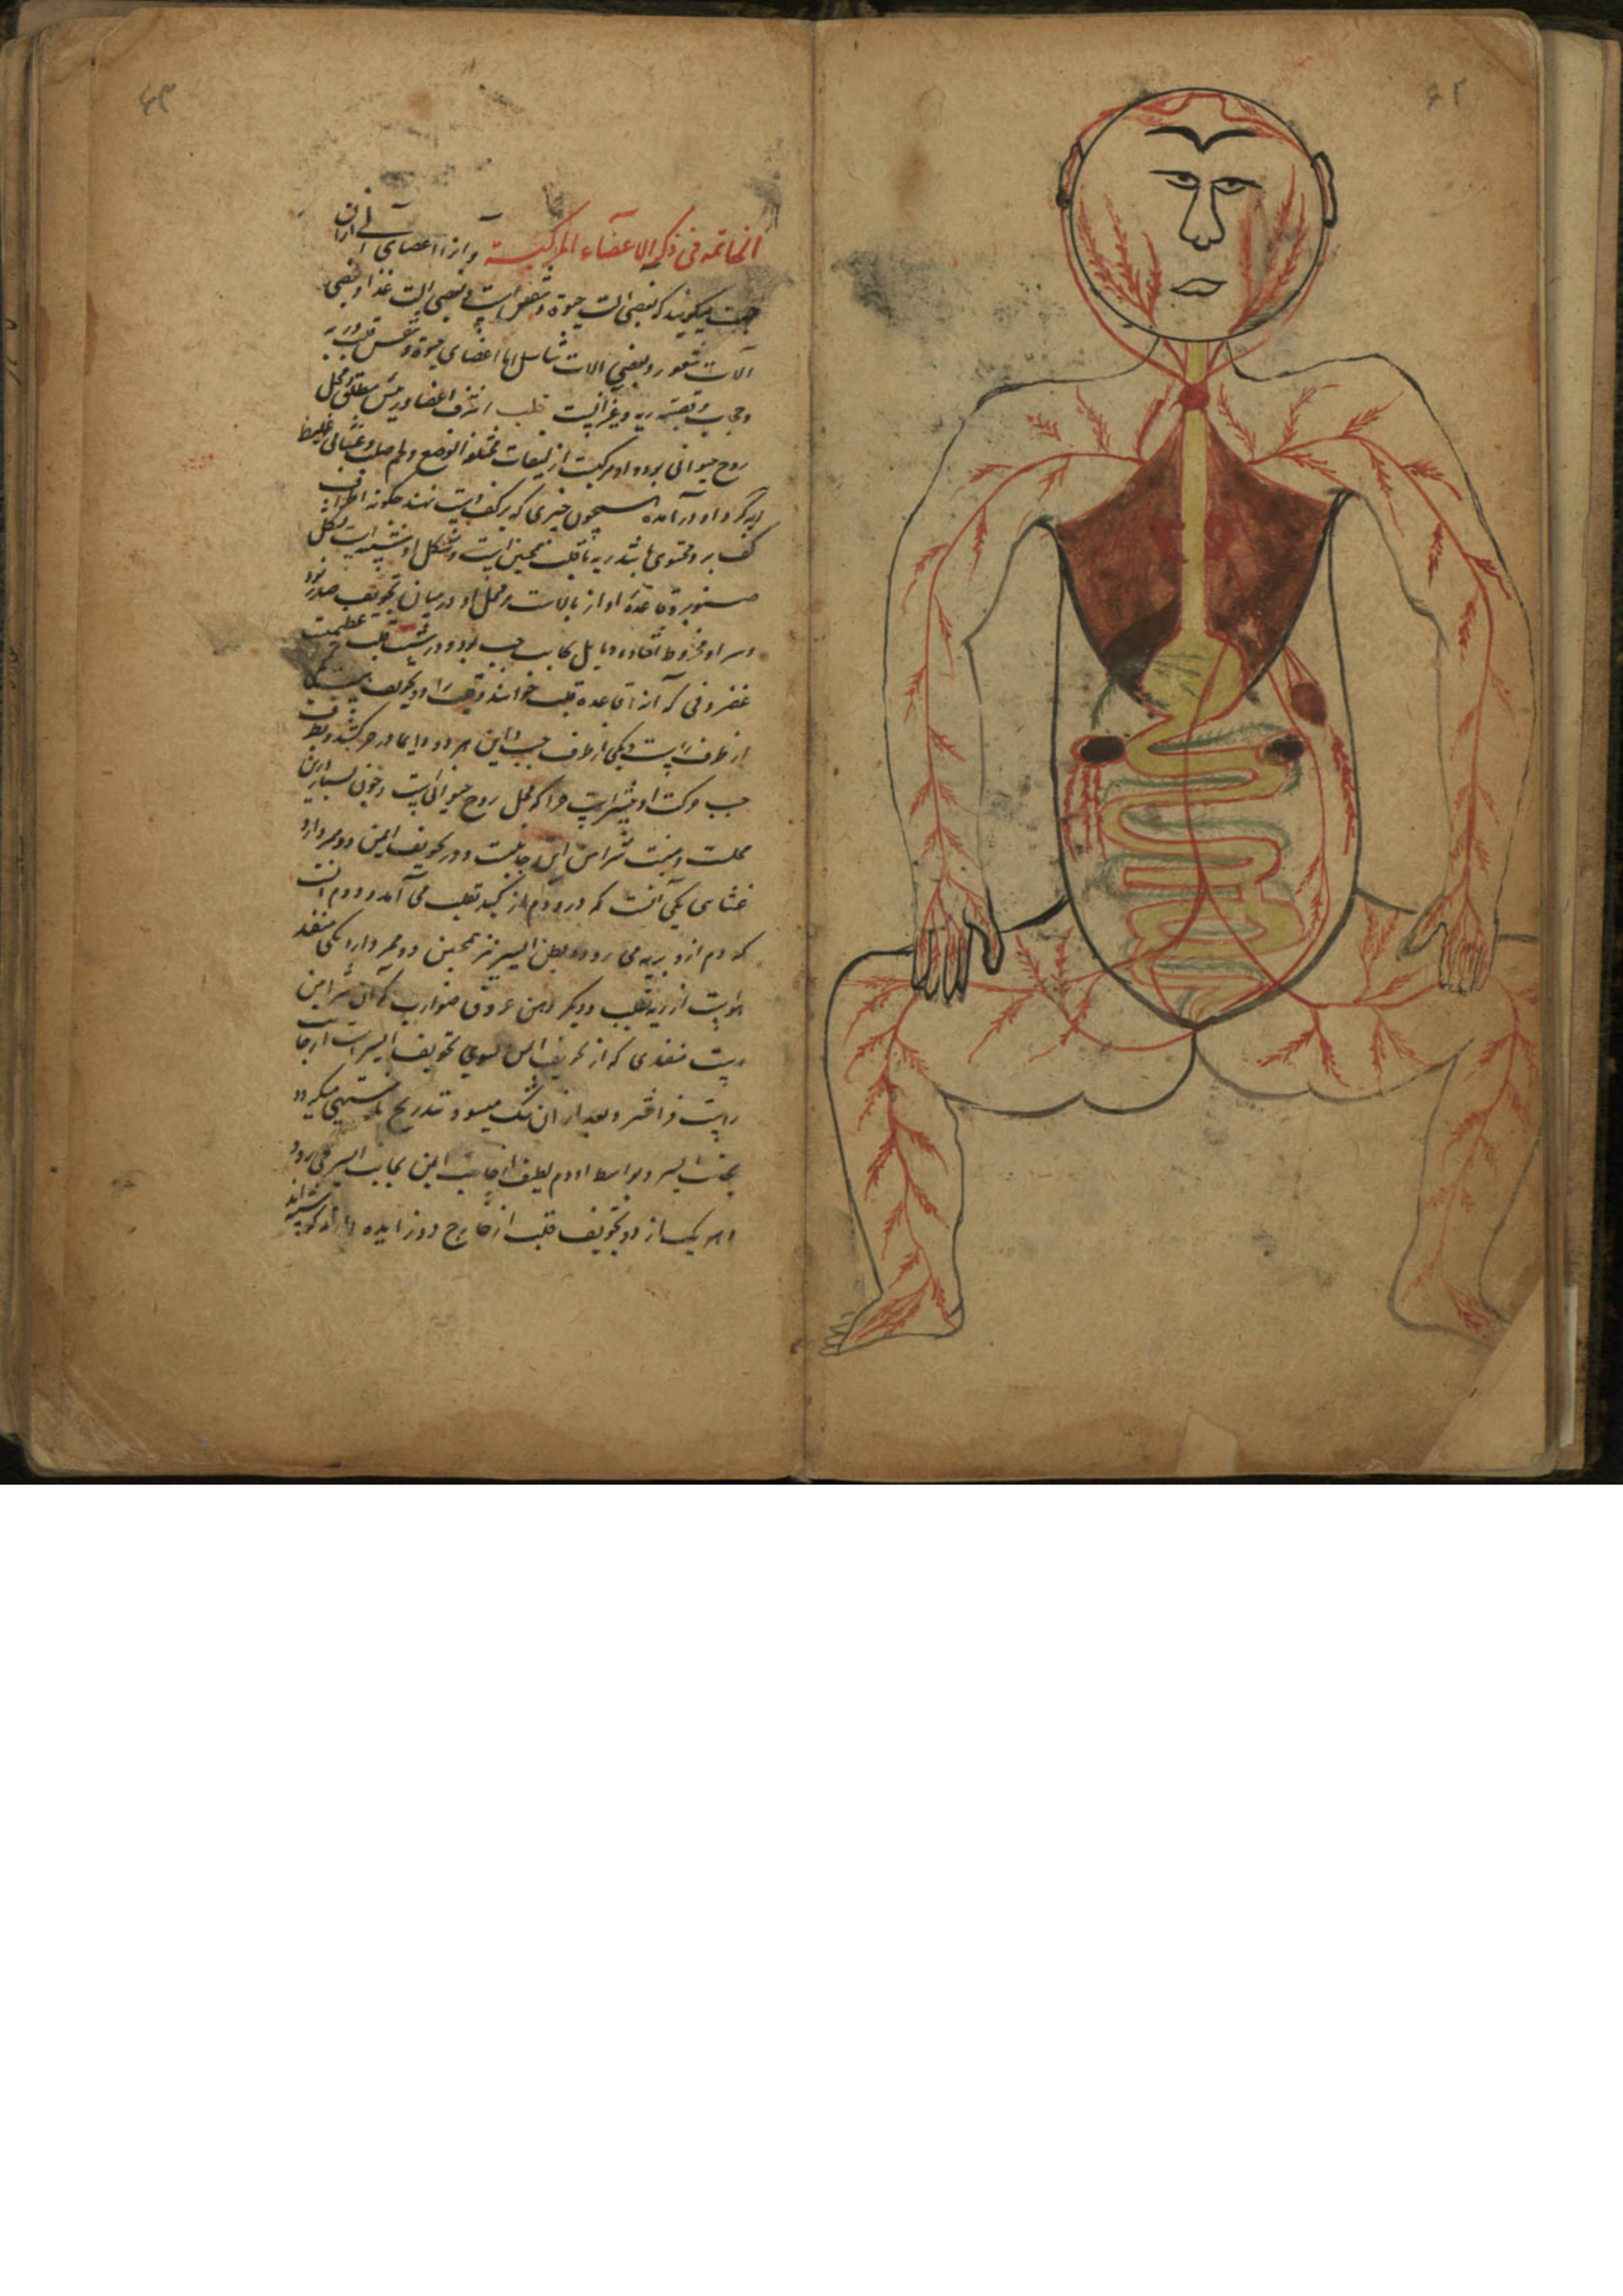 ۶۲
۶۳
الخاتمه فی ذکر الاعضاء المرکبة و آنرا اعضای آلی ازان
جهت میگویند که بعضی الت حیوة و تنفس است و بعضی الت غذا و بعضی
آلات شعور و بعضی الات تناسل اما اعضای حیوة و تنفس قلب و ریه
و حجاب و قصبه ریه و غیر انست قلب اشرف اعضا و رئیس مطلق و محل
روح حیوانی بود و او مرکبست از لیفات مختلفة الوضع و لحم صلب و غشائی غلیظ
که گرد او درآمده همچون چیزی که بر کف دست نهند چگونه اطراف
کف برو محتوی باشد ریه با قلب همچنین است و شکل او شبیه است بشکل
صنوبر و قاعدهٔ او از بالاست و محل او در میان تجویف صدر بود
و سر او مخروط افتاده و مایل بجانب چپ بود و در تحت قلب عظمیست
غضروفی که آنرا قاعده قلب خوانند و قلب را دو تجویف یکی
از طرف راست و یکی از طرف چپ و این هر دو دایما در حرکتند و بطرف
چپ حرکت او بیشتر است چرا که محل روح حیوانی است و خون بسیار درین
محلست و منبت شرایین این جانبست و در تجویف ایمن دو ممر دارد
غشایی یکی آنست که درو دم از کبد بقلب می آمد و دوم انست
که دم ازو بریه می رود و بطن ایسر نیز همچنین دو ممر دارد یکی منفذ
هواست از ریه بقلب و دیگر دهن عروق ضوارب که آن شرایین
است منفذی که از تجویف ایمن بسوی تجویف ایسر است از جانب
راست فراختر و بعد از ان تنگ میشود و بتدریج تا منتهی میگردد
بجانب ایسر و بواسطه او دم لطیف از جانب ایمن بجانب ایسر می رود
و هر یک از دو تجویف قلب از خارج دو زایده دارد که شبیه اند